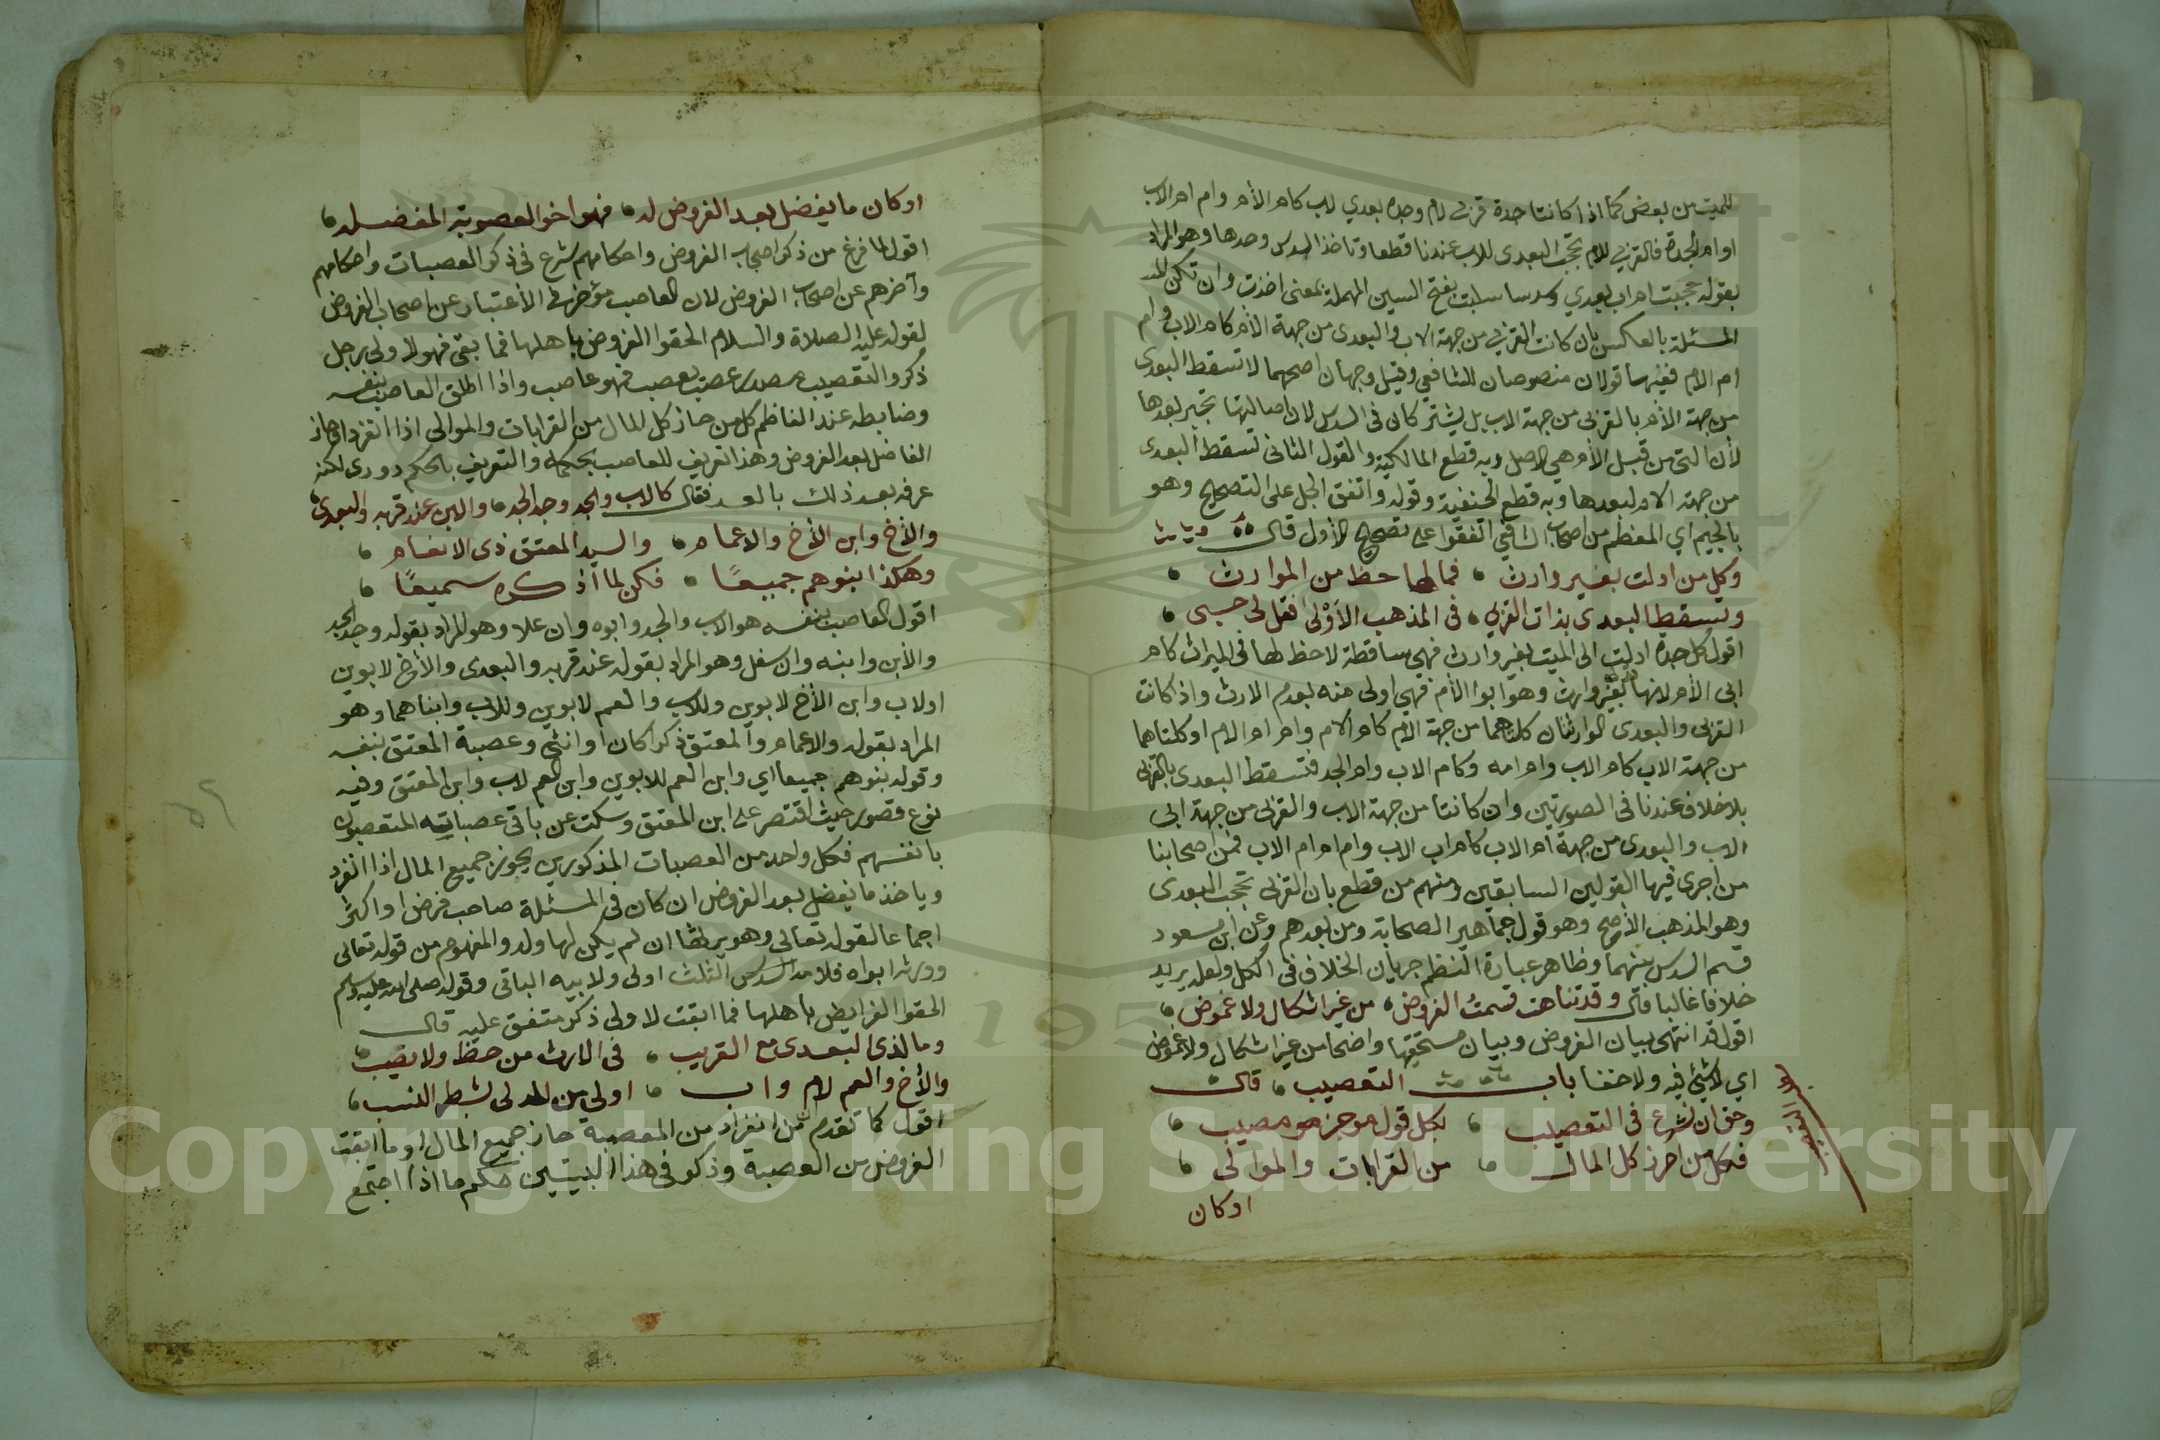 للميت من بعض كما اذا كانتا جدة قربى لام وجدة بعدي لاب كام الأم وام ام الاب
او ام الجد فالقربى للام تحجب البعدى للاب عندنا قطعا وتاخذ السدس وحدها وهو المراد
بقوله حجبت ام اب بعدي وسدسا سلبت بفتح السين المهملة بمعنى اخذت وان تكن
المسئلة بالعكس بان كانت القربى من جهة الاب والبعدى من جهة الأم كام الاب وام
ام الام ففيها قولان منصوصان للشافعي وقيل وجهان اصحهما لا تسقط البعدى
من جهة الأم بالقربى من جهة الاب بل يشتركان في السدس لان اصالتها تجبر بعدها
لأن التي من قبل الأم هي الاصل وبه قطع المالكية والقول الثاني تسقط البعدى
من جهة الام لبعدها وبه قطع الحنفية وقوله واتفق الجل على التصحيح وهو
بالجيم اي المعظم من اصحاب الشافعي اتفقوا على تصحيح الأول قال
وكل من ادلت بغير وارث فما لها حظ من الموارث
وتسقط البعدى بذات القربى في المذهب الأولى فقل لى حسبى
اقول كل جدة ادلت الى الميت بغير وارث فهي ساقطة لاحظ لها في الميراث كام
ابى الأم لانها بغير وارث وهو ابوا الأم فهي اولى منه بعدم الارث واذ كانت
القربى والبعدى الوارثتان كلتاهما من جهة الام كام الام وام ام الام او كلتاهما
من جهة الاب كام الاب وام امه وكام الاب وام الجد فتسقط البعدى بالقربى
بلا خلاف عندنا في الصورتين وان كانتا من جهة الاب والقربى من جهة ابى
الاب والبعدى من جهة ام الاب كام اب الاب وام ام ام الاب فمن اصحابنا
من اجرى فيها القولين السابقين ومنهم من قطع بان القربى تحجب البعدى
وهو المذهب الأصح وهو قول جماهير الصحابة ومن بعدهم وعن ابن مسعود
قسم السدس بينهما وظاهر عبارة النظم جريان الخلاف في الكل ولعله يريد
خلافا غالبا قال وقد تناهت قسمة الفروض من غير اشكال ولا غموض
اقول قد انتهى بيان الفروض وبيان مستحقيها واضحا من غير اشكال ولا غموض
اي لا شيئ فيه ولا خفا باب التعصيب قال
وحق ان نشرع في التعصيب بكل قول موجز مصيب
فكل من احرز كل المال من القرابات والموالى
او كان
او كان ما يفضل بعد الفروض له فهو اخو العصوبة المفضله
اقول لما فرغ من ذكر اصحاب الفروض واحكامهم شرع في ذكر العصبات واحكامهم
وأخرهم عن اصحاب الفروض لان العاصب مؤخر في الأعتبار عن اصحاب الفروض
لقوله عليه الصلاة والسلام الحقوا الفروض باهلها فما بقى فهو لاولى رجل
ذكر والتعصيب مصدر عصب يعصب فهو عاصب واذا اطلق العاصب بنفسه
وضابطه عند الناظم كل من حاز كل المال من القرابات والموالى اذا انفرد او حاز
الفاضل بعد الفروض وهذا تعريف للعاصب بحكمه والتعريف بالحكم دورى لكنه
عرفه بعد ذلك بالعد فقال كالاب والجد وجد الجد والابن عند قربه والبعدى
والأخ وابن الأخ والاعمام والسيد المعتق ذى الانعام
وهكذا بنوهم جميعًا فكن لما أذكره سميعًا
اقول العاصب بنفسه هو الاب والجد وابوه وان علا وهو المراد بقوله وجد الجد
والأبن وابنه وان سفل وهو المراد بقوله عند قربه والبعدى والأخ لابوين
اولاب وابن الأخ لابوين وللاب والعم لابوين وللاب وابناهما وهو
المراد بقوله والاعمام والمعتق ذكرا كان او انثى وعصبة المعتق بنفسه
وقوله بنوهم جميعا اي وابن العم للابوين وابن العم لاب وابن المعتق وفيه
نوع قصور حيث اقتصر على ابن المعتق وسكت عن باقى عصباته المتعصبون
بانفسهم فكل واحد من العصبات المذكورين يحوز جميع المال اذا انفرد
وياخذ ما يفضل بعد الفروض ان كان في المسئلة صاحب فرض او اكثر
اجماعا لقوله تعالى وهو يرثها ان لم يكن لها ولد والمفهوم من قوله تعالى
وورثه ابواه فلامه الثلث اولى ولابيه الباقى وقوله صلى الله عليه وسلم
الحقوا الفرايض باهلها فما ابقت لاولى ذكر متفق عليه قال
وما لذى البعدى مع القريب في الارث من حظ ولا نصيب
والأخ والعم لام واب اولى من المدلى بشطر النسب
اقول كما تقدم من انفراد من العصبة حاز جميع المال او ما ابقت
الفروض من العصبة وذكر في هذا البيتين حكم ما اذا اجتمع
Copyright © King Saud University
1957